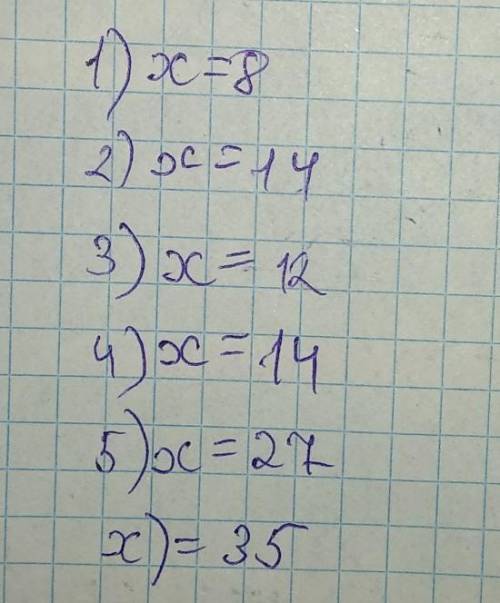 1) x=8
2) x=14
3) x=12
4) x=14
5) x=27
x)=35